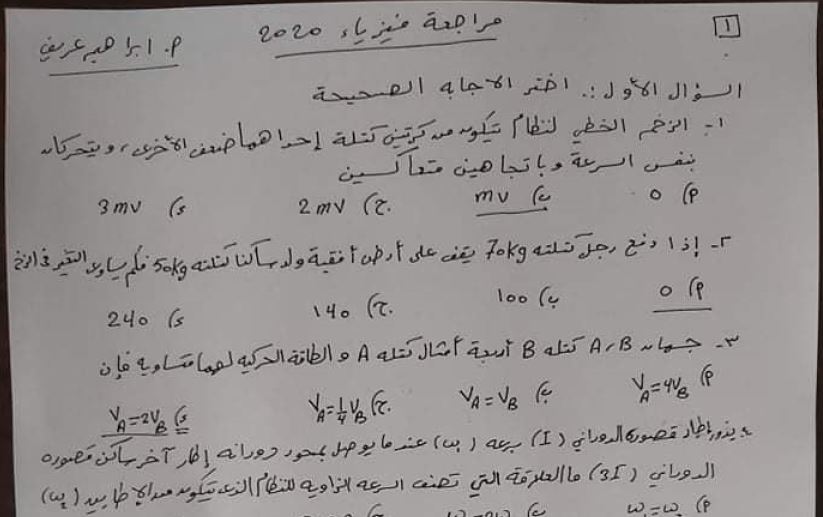 1
مراجعة فيزياء 2020
م. ابراهيم عريف
السؤال الأول :. اختر الاجابه الصحيحة
١- الزخم الخطي لنظام يتكون من كرتين كتلة إحداهما ضعف الأخرى، ويتحركان
بنفس السرعة وباتجاهين متعاكسين
م) 0 ب) mv ج) 2mv د) 3mv
٢- إذا دفع رجل كتلته 70kg يقف على أرض أفقية ولد ساكنا كتلته 50kg فكم يساوي التغير في الزخم
م) 0 ب) 100 ج) 140 د) 240
٣- جسمان A,B كتله B أربعة أمثال كتله A و الطاقة الحركيه لهما متساويه فإن
م) V_A=4V_B ب) V_A=V_B ج) V_A=¼V_B د) V_A=2V_B
٤ يدور إطار قصوره الدوراني (I) بسرعه (ω) عندما يوصل بمحور دورانه إطار آخر ساكن قصوره
الدوراني (3I) ما العلاقة التي تصف السرعه الزاويه للنظام الذي يتكون من الإطارين (ω)